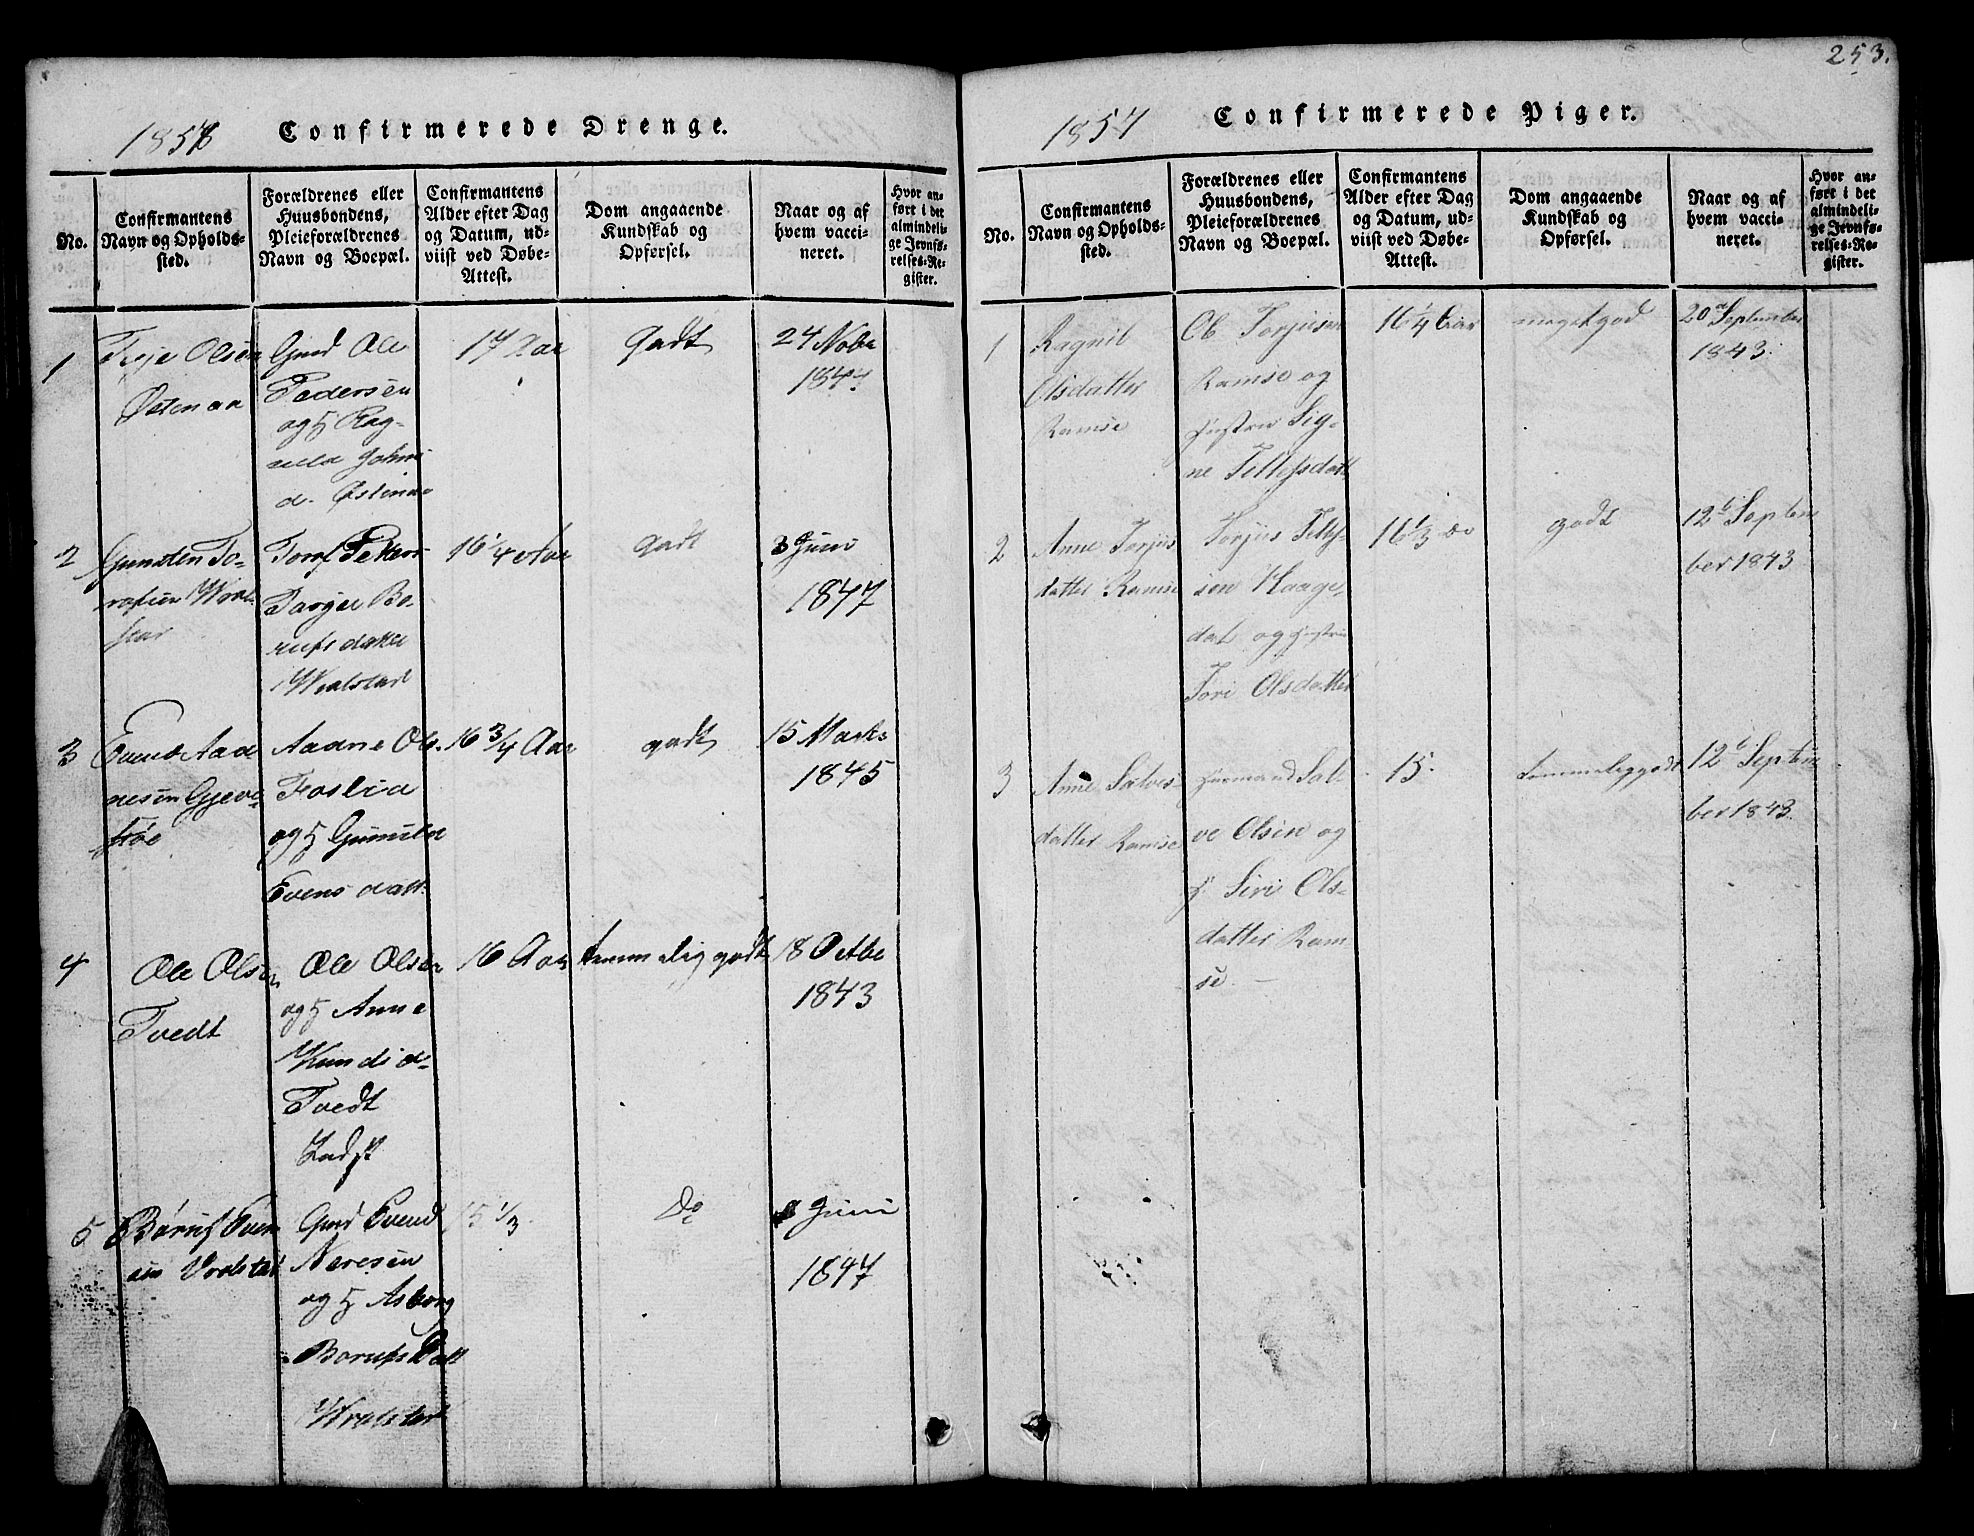 253.
1858 Confirmerede Drenge.
No.
Confirmantens
Navn og Opholds-
sted.
Forældrenes eller
Huusbondens,
Pleieforældrenes
Navn og Boepæl.
Confirmantens
Alder efter Dag
og Datum, ud-
viist ved Døbe-
Attest.
Dom angaaende
Kundskab og
Opførsel.
Naar og af
hvem vacci-
neret.
Hvor an-
ført i det
almindeli-
ge Jevnfø-
relses-Re-
gister.
1
Terje Olsen
Østenaa
Gmd Ole
Pedersen
og H Rag-
nild
d. Østenaa
17 Aar
Godt
24 Nobr
1844
2
Gunsten To-
rofsen Wral-
stad
Torof
Targer Bo-
rufsdatter
Wralstad
16 1/4 Aar
godt
3 Juni
1847
3
Evend Aad
nesen Gjeve-
støe
Aadne Ols.
Foslia
og H Gunild
Evensdatt.
16 3/4 Aar
godt
15 Marts
1845
4
Ole Olsen
Tvedt
Ole Olsen
og H Anne
Knudsd-
Tvedt
16 Aar
temmelig godt
18 Octbr
1843
5
Børuf Even
sen Vralstad
Gmd Evend
Neresen
og H Asborg
Borufs Datt
Wralstad
15 1/3
Do
Juni
1847
1857 Confirmerede Piger.
No.
Confirmantens
Navn og Opholds-
sted.
Forældrenes eller
Huusbondens,
Pleieforældrenes
Navn og Boepæl.
Confirmantens
Alder efter Dag
og Datum, ud-
viist ved Døbe-
Attest.
Dom angaaende
Kundskab og
Opførsel.
Naar og af
hvem vacci-
neret.
Hvor an-
ført i det
almindeli-
ge Jevnfø-
relses-Re-
gister.
1
Ragnil
Olsdatter
Ramse
Ole Torjusen
Ramse og
Hustru Sig-
ne Tellefsdatt
16 1/4 Aar
meget god
20 September
1843.
2
Anne Torjus
datter Ramse
Torjus Tellef
sen Haage-
dal og Hustru
Tori Olsdatter
16 1/3 do
godt
12te Septem
ber 1843
3
Anne Salves-
datter Ramse
Huusmand Sal-
ve Olsen og
H. Siri Ols-
datter Ram-
se. —
15.
temmelig godt
12te Septem
ber 1843.